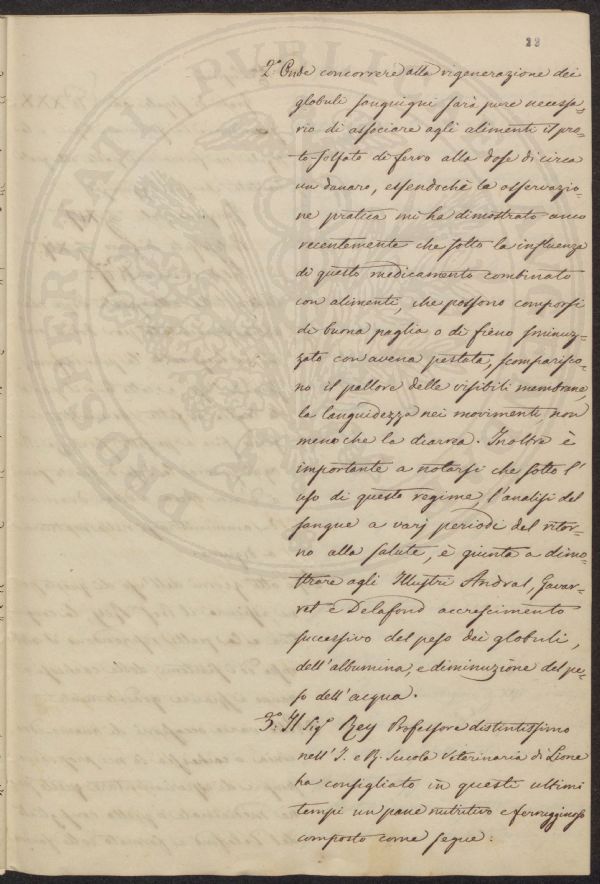 28
2.° Onde concorrere alla rigenerazione dei
globuli sanguigni sarà pure necessa-
rio di associare agli alimenti il pro-
to-solfato di ferro alla dose di circa
un danaro, essendochè la osservazio-
ne pratica mi ha dimostrato anco
recentemente che sotto la influenza
di questo medicamento combinato
con alimenti, che possono comporsi
di buona paglia o di fieno sminuz-
zato con avena pestata, scomparisco-
no il pallore delle visibili membrane,
la languidezza nei movimenti, non
meno che la diarea. Inoltre è
importante a notarsi che sotto l'
uso di questo regime, l'analisi del
sangue a varj periodi del ritor-
no alla salute, è giunta a dimo-
strare agli Illustri Andral, Gavar-
ret e Delafond accrescimento
successivo del peso dei globuli,
dell'albumina, e diminuzione del pe-
so dell'acqua.
3.° Il Sig.r Rey Professore distintissimo
nell'I. e R. Scuola Veterinaria di Lione
ha consigliato in questi ultimi
tempi un pane nutritivo e ferrugginoso
composto come segue:
PROPERTATI PVBLIC